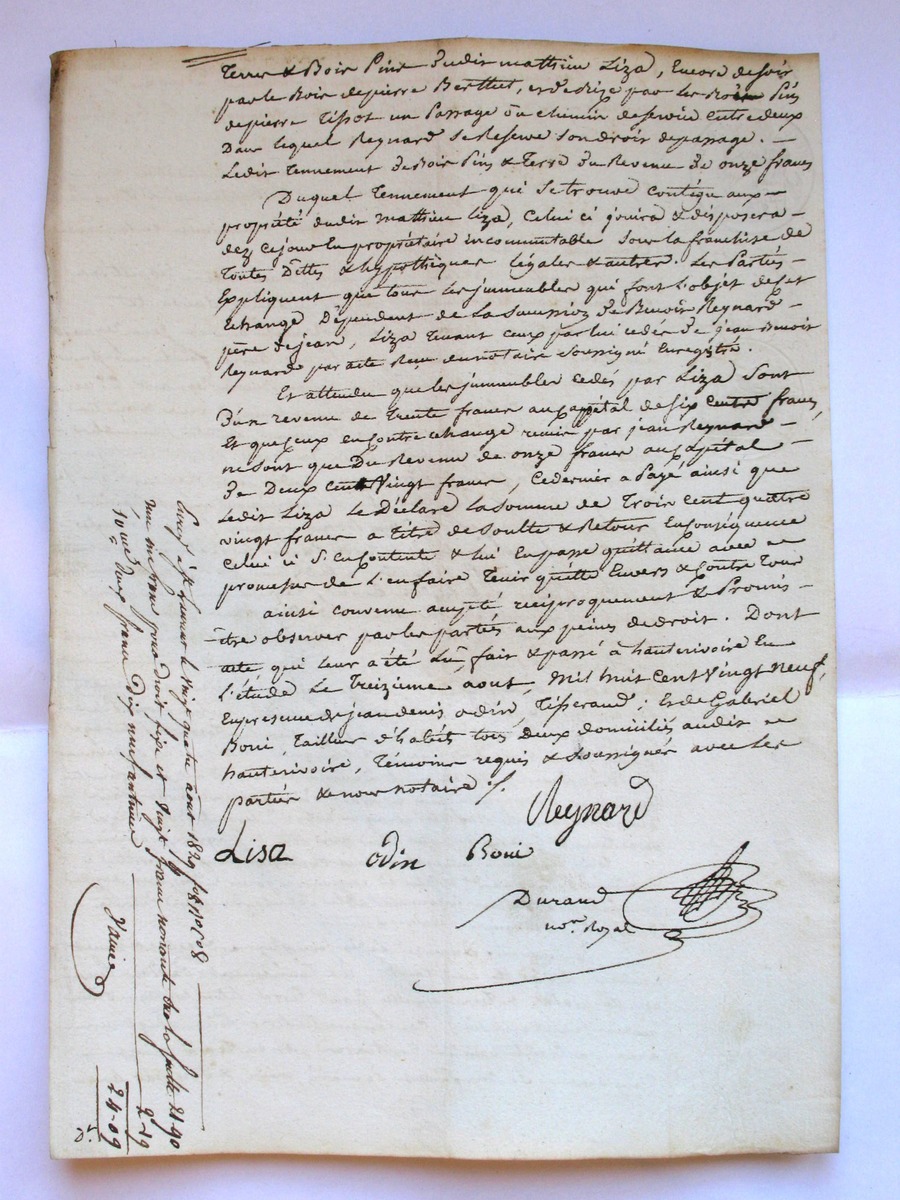 terre & Bois Pins dudit mathieu Liza, Encore de soir
par le Bois de pierre Berthet, et de bize par les Bois Pins
de pierre Tissot un Passage ou chemin deservie entre deux
Dans lequel Reynard Se Reserve Son droit de passage. —
Ledit Tennement de Bois Pins & Terre du Revenu de onze francs
Duquel Tennement qui Se trouve contigu aux —
propriété dudit mathieu Liza, Celui ci jouira & disposera —
dez ce jour En propriétaire incommutable Sous la franchise de
Toutes Dettes & hypothèques légales & autres. Les Parties —
Expliquent que tous les jmmeubles qui font l'objet de cet
Echange Dépendent de La Succession de Benoit Reynard —
père de jean, Liza tenant ceux par lui cedés de jean Benoit
Reynard par acte Reçu du notaire Soussigné Enregistré.
Et attendu que les jmmeubles cedés par Liza Sont
D'un revenu de Trente francs au Capital de Six cents francs,
Et que ceux en Contre echange remis par jean Reynard —
ne Sont que Du Revenu de onze francs au Capital —
de Deux cent Vingt francs, Ce dernier a Payé ainsi que
Ledit Liza Le Déclare La Somme de Trois Cent quatre
vingt francs a Titre de Soulte & Retour En Conséquence
Celui ci S'en Contente & lui En passe quittance avec —
promesse de L'en faire Tenir quitte Envers & Contre Tous
ainsi convenu accepté réciproquement & Promis —
être observer par les parties aux peines de droit. Dont
acte, qui leur a été Lu, fait & passé à hauterivoire En
l'étude Le Treizieme aout, mil huit Cent Vingt Neuf,
En presence de jean denis odin, Tisserand; Et de Gabriel
Boni, Tailleur d'habits tous Deux Domiciliés audit —
hauterivoire, Temoins requis & Soussignés avec les
parties & nous notaire ./.
Reynard
Lisa odin Boni
Durand
no.re Royal
le Vingt quatre aout 1829
un franc pour droit fixe et Vingt francs nonante de la Soulte 21-90
deux francs dix neuf centimes 2-19
24-09